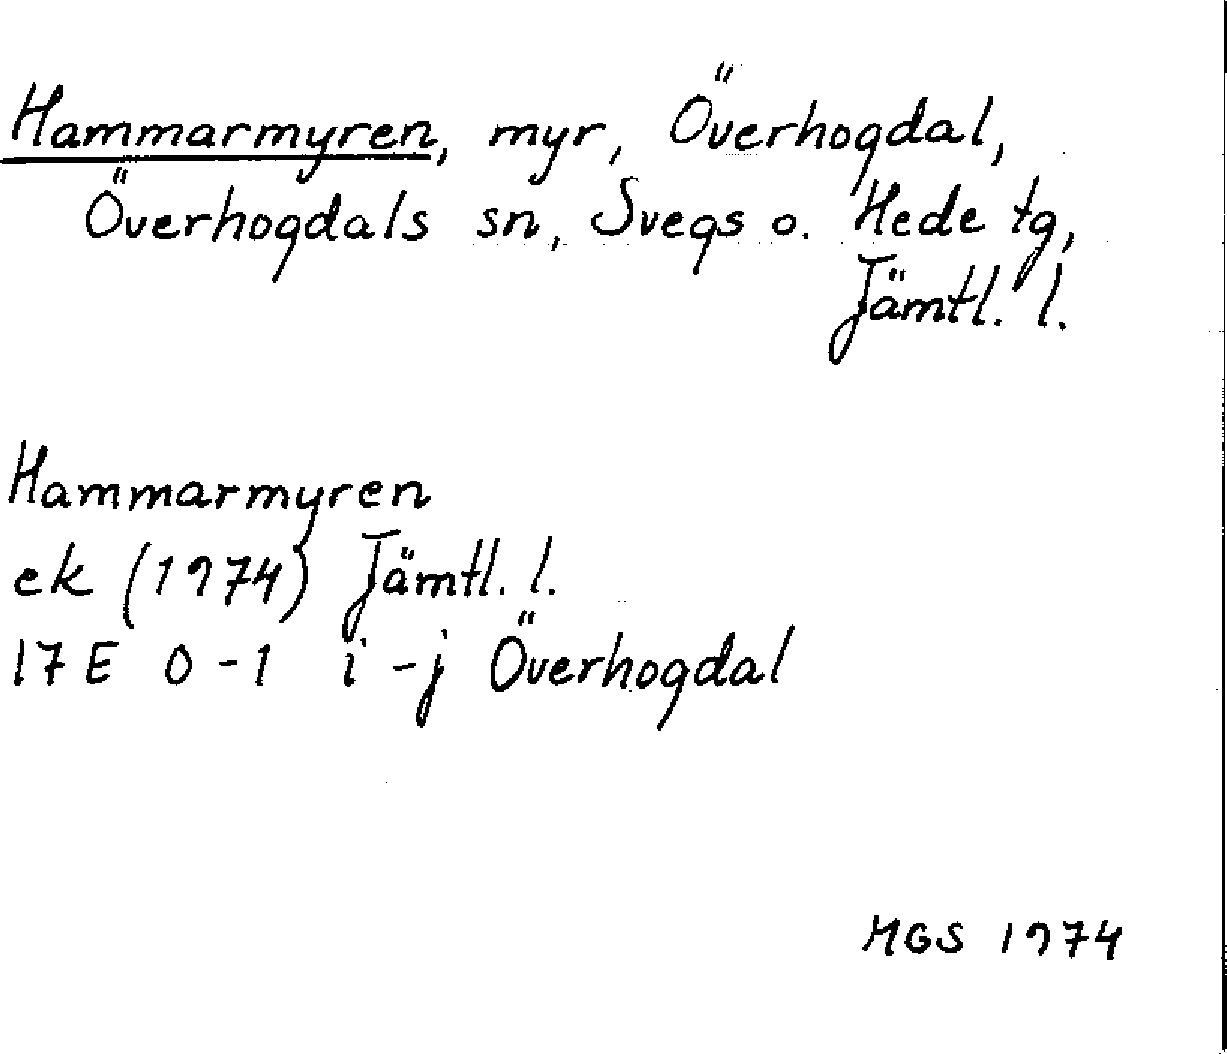 Hammarmyren, myr, Överhogdal,
Överhogdals sn, Svegs o. Hede tg,
Jämtl. l.
Hammarmyren
ek (1974) Jämtl. l.
17E 0-1 i-j Överhogdal
MGS 1974